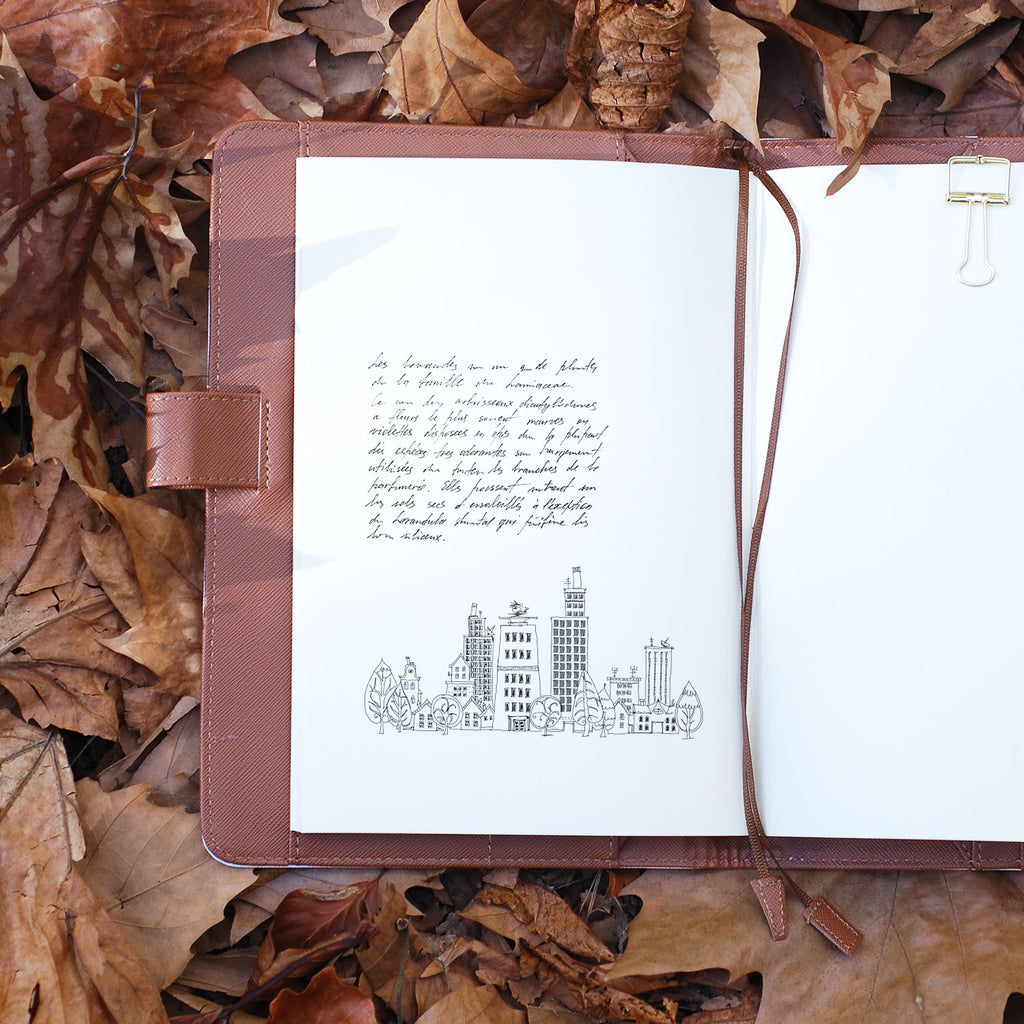 Les lavandes un de plantes
de la famille des Lamiaceae.
Ce sont des arbrisseaux dicotylédones
à fleurs le plus souvent mauves ou
violettes disposées en épis dont la plupart
des espèces très odorantes sont largement
utilisées dans toutes les branches de la
parfumerie. Elles poussent surtout sur
les sols secs et ensoleillés à l'exception
de Lavandula qui préfère les
siliceux.